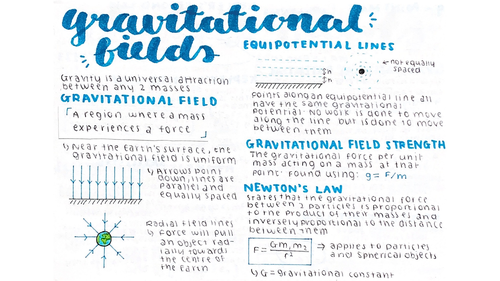 gravitational
fields
Gravity is a universal attraction
between any 2 masses
GRAVITATIONAL FIELD
"A region where a mass
experiences a force"
↳ Near the earth's surface, the
gravitational field is uniform
↳ Arrows point
down, lines are
parallel and
equally spaced
Radial field lines
↳ Force will pull
an object rad-
ially towards
the centre of
the Earth
EQUIPOTENTIAL LINES
not equally
spaced
points along an equipotential line all
have the same gravitational
potential. No work is done to move
along the line but is done to move
between them
GRAVITATIONAL FIELD STRENGTH
The gravitational force per unit
mass acting on a mass at that
point. Found using: g = F/m
NEWTON'S LAW
States that the gravitational force
between 2 particles is proportional
to the product of their masses and
inversely proportional to the distance
between them
F = Gm₁m₂/r² ⇒ applies to particles
and spherical objects
↳ G = Gravitational constant